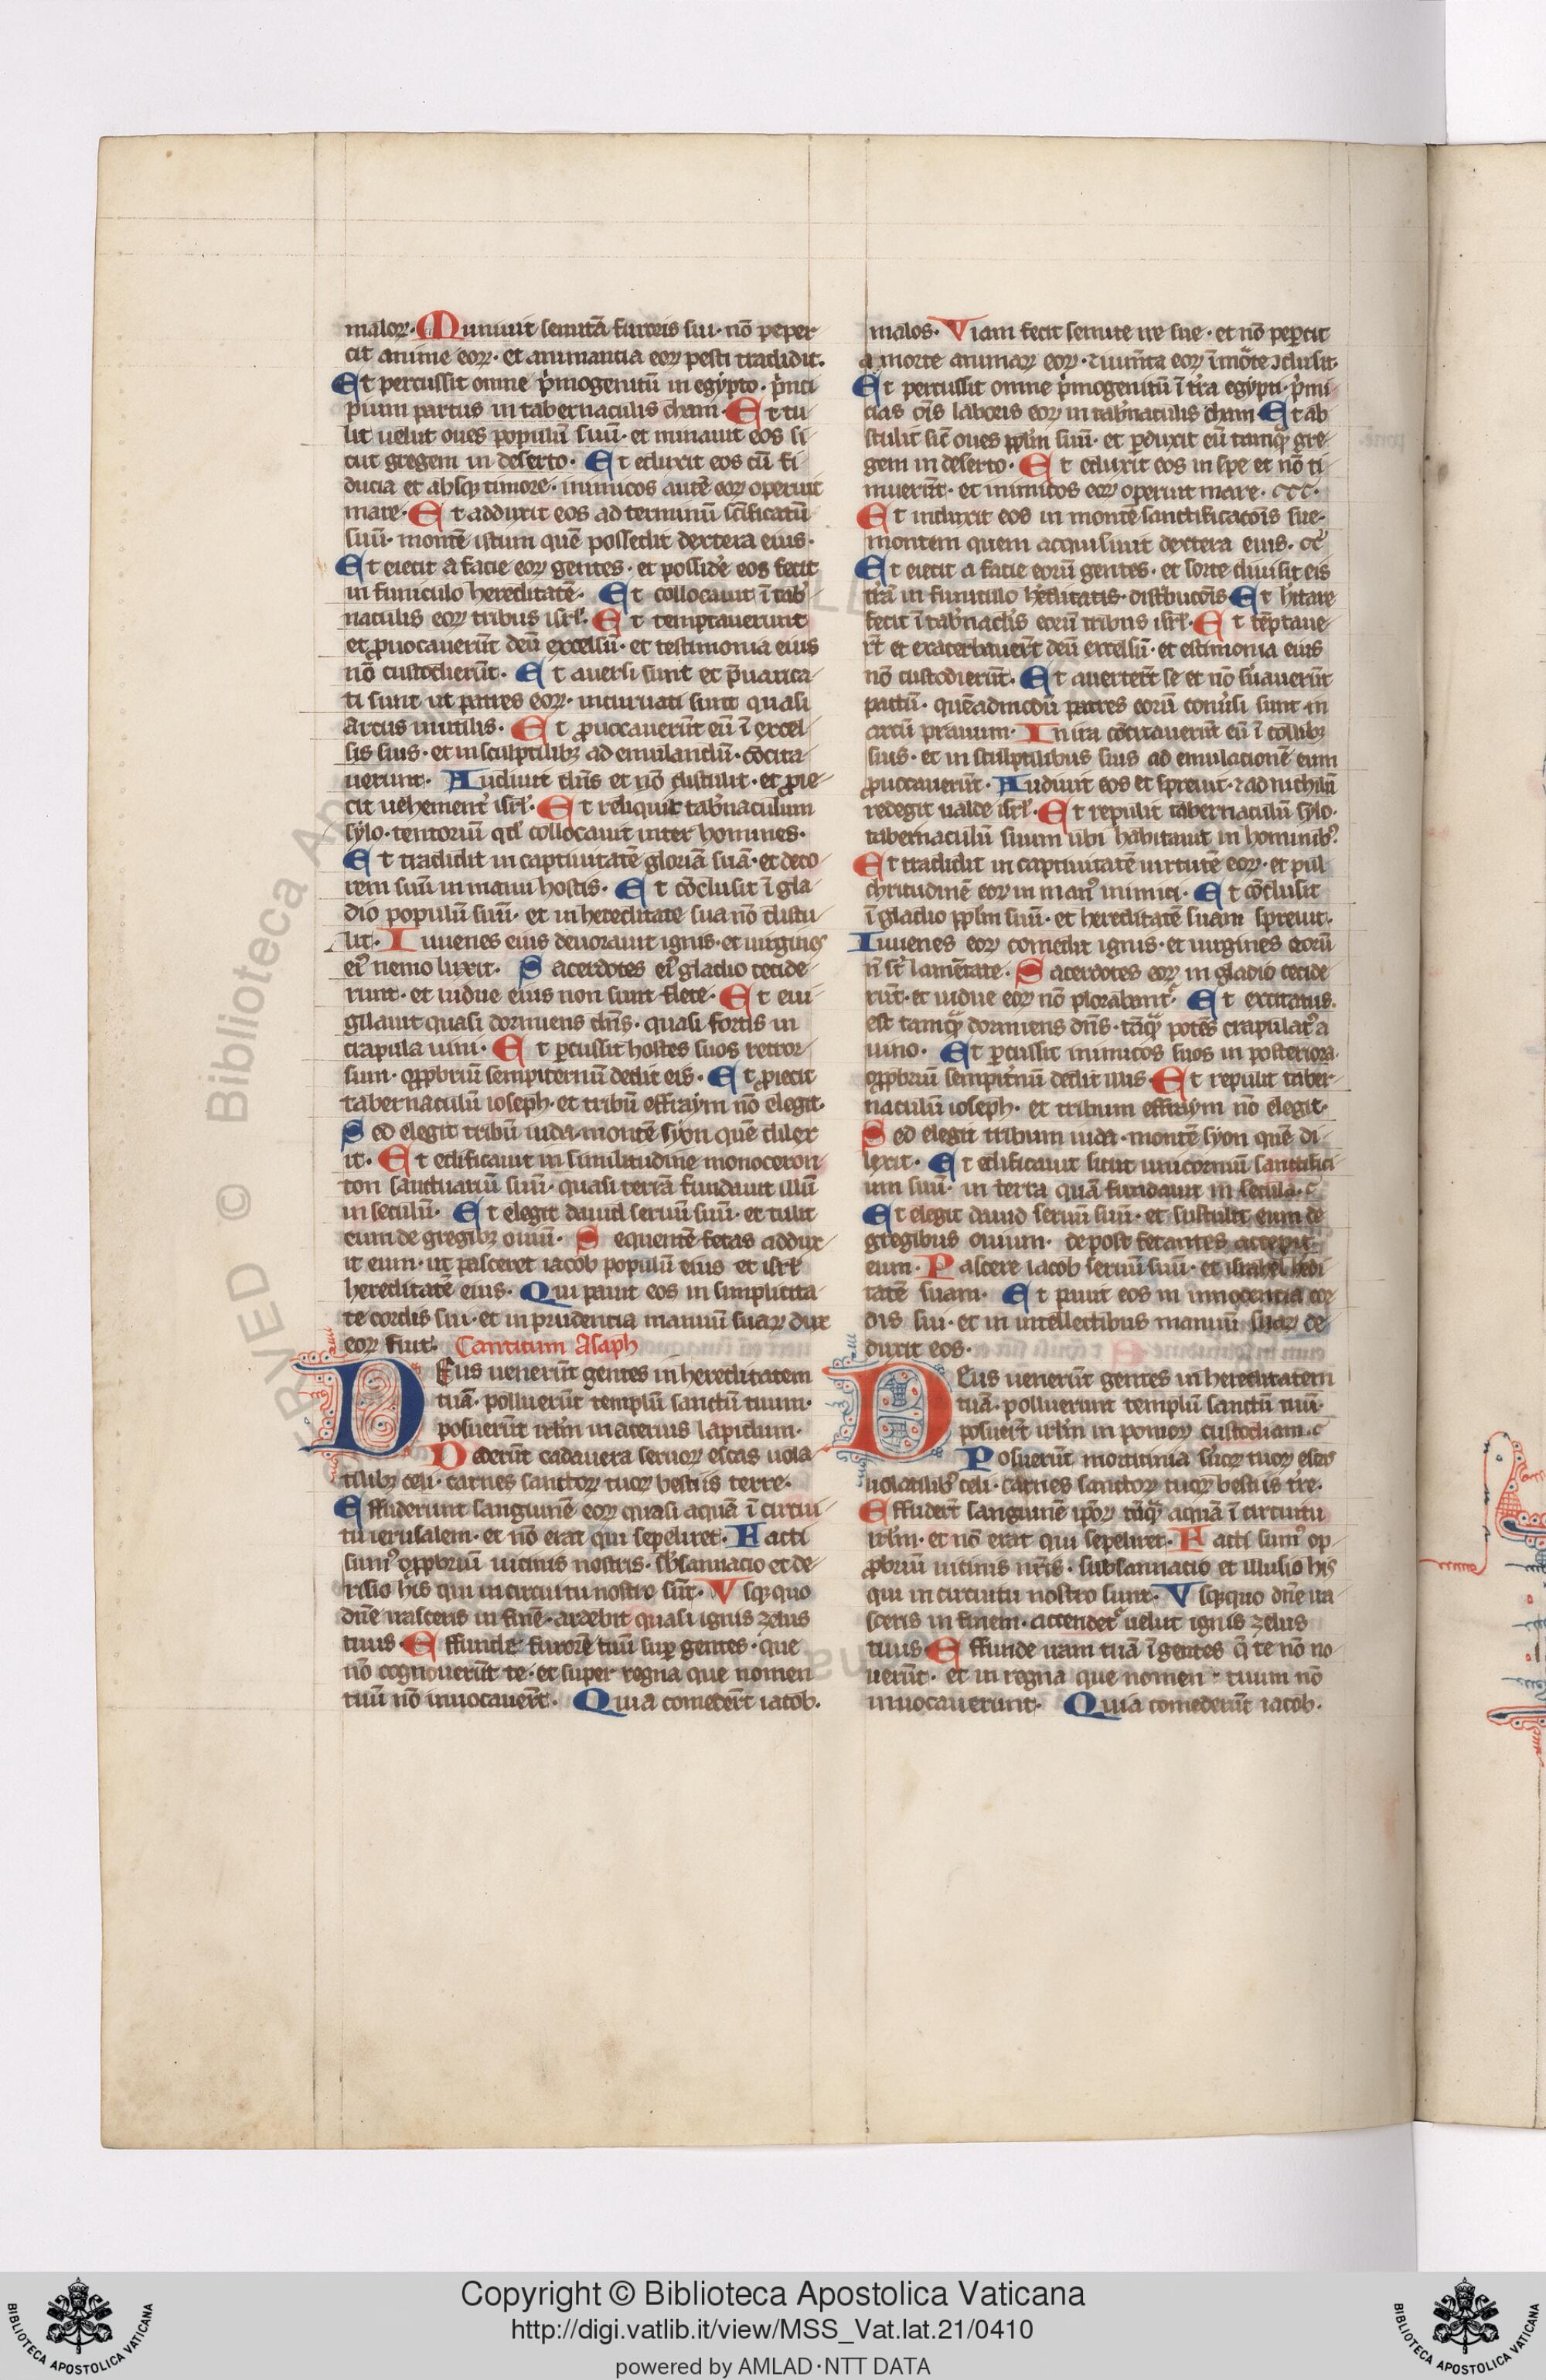 malorꝝ· Muniuit semitā furoris sui· nō peper
cit anime eorꝝ· et animantia eorꝝ pesti tradidit·
Et percussit omne p̓mogenitū in egypto· p̓nci
pium partus in tabernaculis cham· Et tu
lit uelut oues populū suū· et minauit eos si
cut gregem in deserto· Et eduxit eos cū fi
ducia et absqꝫ timore· inimicos autē eorꝝ operuit
mare· Et adduxit eos ad terminū sc̄ificatū
suū· montē istum quē possedit dextera eius·
Et eiecit a facie eorꝝ gentes· et posside̓ eos fecit
in funiculo hereditatē· Et collocauit ī tab̓
naculis eorꝝ tribus isrl̓· Et temptauerunt
et ꝓuocauerūt deū excelsū· et testimonia eius
nō custodierūt· Et auersi sunt et p̄uarica
ti sunt ut patres eorꝝ· incuruati sunt quasi
arcus inutilis· Et ꝓuocauerūt eū ī excel
sis suis· et in sculptilibꝫ ad emulandū· cōcita
uerunt· Audiuit dn̄s et nō distulit· et ꝓie
cit uehement̓ isrl̓· Et reliquit tab̓naculum
sylo· tentoriū qd̓ collocauit inter homines·
Et tradidit in captiuitatē gloriā suā· et deco
rem suū in manu hostis· Et cōclusit ī gla
dio populū suū· et in hereditate sua nō distu
lit· Iuuenes eius deuorauit ignis· et uirgines
eiꝰ nemo luxit· Sacerdotes eiꝰ gladio cecide
runt· et uidue eius non sunt flete· Et eui
gilauit quasi dormiens dn̄s· quasi fortis in
crapula uini· Et ꝑcussit hostes suos retror
sum· opꝓbriū sempiternū dedit eis· Et ꝓiecit
tabernaculū ioseph· et tribū effraym nō elegit·
Sed elegit tribū iuda· montē syon quē dilex
it· Et edificauit in similitudine monoceron
ton sanctuariū suū· quasi terrā fundauit illū
in seculū· Et elegit dauid seruū suū· et tulit
eum de gregibꝫ ouiū· Sequentē fetas addux
it eum· ut pasceret iacob populū eius et isrl̓
hereditatē eius· Qui pauit eos in simplicita
te cordis sui· et in prudentia manuū suarꝝ dux
eorꝝ fuit· Canticum Asaph
Deus uenerūt gentes in hereditatem
tuā· polluerūt templū sanctū tuum·
posuerūt irl̓m in aceruis lapidum·
Dederūt cadauera seruorꝝ escas uola
tilibꝫ celi· carnes sanctorꝝ tuorꝝ bestiis terre·
Effuderunt sanguinē eorꝝ quasi aquā ī circui
tu ierusalem· et nō erat qui sepeliret· Facti
sumꝰ opꝓbriū uicinis nostris· sb̓sannacio et de
risio his qui in circuitu nostro sūt· Vsqꝫquo
dn̄e irasceris in finē· ardebit quasi ignis zelus
tuus· Effunde furorē tuū sup̱ gentes· que
nō cognouerūt te· et super regna que nomen
tuū nō inuocauer̄t· Quia comeder̄t iacob·
malos· Viam fecit semite ire sue· et nō peꝑcit
a morte animarꝝ eorꝝ· ⁊ iumēta eorꝝ ī mōte ɔclusit·
Et percussit omne p̓mogenitū ī t̓ra egypti· p̓mi
cias om̄s laboris eorꝝ in tab̓naculis cham· Et ab
stulit sic̄ oues ppl̓m suū· et ꝑduxit eū tamqᷓ gre
gem in deserto· Et eduxit eos in spe et nō ti
muerūt· et inimicos eorꝝ operuit mare·
Et induxit eos in montē sanctificacōis sue·
montem quem acquisiuit dextera eius·
Et eiecit a facie eorū gentes· et sorte diuisit eis
t̓rā in funiculo h̓editatis· distbucōis Et h̓itare
fecit ī tab̓nacl̓is eorū tribus isrl̓· Et tēptaue
rt̄ et exacerbauer̄t deū excelsū· et estimonia eius
nō custodierūt· Et auerter̄t se et nō s̓uauerūt
pactū· quēadmodū patres eorū conu̓si sunt in
arcū prauum· In ira cōcitauerūt eū ī collibꝫ
suis· et in sculptilibus suis ad emulacionē eum
ꝓuocauerūt· Audiuit eos et spreuit· ⁊ ad nichilū
redegit ualde isrl̓· Et repulit tabernaculū sylo·
tabernaculū suum ubi habitauit in hominibꝰ
Et tradidit in captiuitatē uirtutē eorꝝ· et pul
chritudinē eorꝝ in manꝰ inimici· Et cōclusit
ī gladio ppl̓m suū· et hereditatē suam spreuit·
Iuuenes eorꝝ comedit ignis· et uirgines eorū
n̄ st̄ lamētate· Sacerdotes eorꝝ in gladio cecide
rūt· et uidue eorꝝ nō plorabant᷑· Et excitatus
est tamqᷓ dormiens dn̄s· tāqᷓ potēs crapulatꝰ a
uino· Et ꝑcussit inimicos suos in posteriora·
opꝓbriū sempit̓nū dedit illis· Et repulit taber
naculū ioseph· et tribum effraym nō elegit·
Sed elegit tribum iuda· montē syon quē di
lexit· Et edificauit sicut unicornuū sanctifici
um suū· in terra quā fundauit in secula·
Et elegit dauid seruū suū· et sustulit eum de
gregibus ouium· de post fetantes accepit
eum· Pascere iacob seruū suū· et israhel h̓edi
tatē suam· Et pauit eos in innocentia cor
dis sui· et in intellectibus manuū suarꝝ de
duxit eos·
Deus uenerūt gentes in hereditatem
tuā· polluerunt templū sanctū tuū·
posuer̄t irl̓m in pomorꝝ custodiam·
Posuerūt morticinia s̓uorꝝ tuorꝝ escas
uolatilibꝰ celi· carnes sanctorꝝ tuorꝝ bestiis t̓re·
Effuder̄t sanguinē ip̄orꝝ tāqᷓ aquā ī circuitu
irl̓m· et nō erat qui sepeliret· Facti sumꝰ op
ꝓbriū uicinis nr̄is· subsannacio et illusio his
qui in circuitu nostro sunt· Vsqꝫquo dn̄e ira
sceris in finem· accendet᷑ uelut ignis zelus
tuus· Effunde iram tuā ī gentes q̄ te nō no
uerūt· et in regna que nomen tuum nō
inuocauerunt· Quia comederūt iacob·
Copyright © Biblioteca Apostolica Vaticana
http://digi.vatlib.it/view/MSS_Vat.lat.21/0410
powered by AMLAD·NTT DATA
BIBLIOTECA APOSTOLICA VATICANA
BIBLIOTECA APOSTOLICA VATICANA